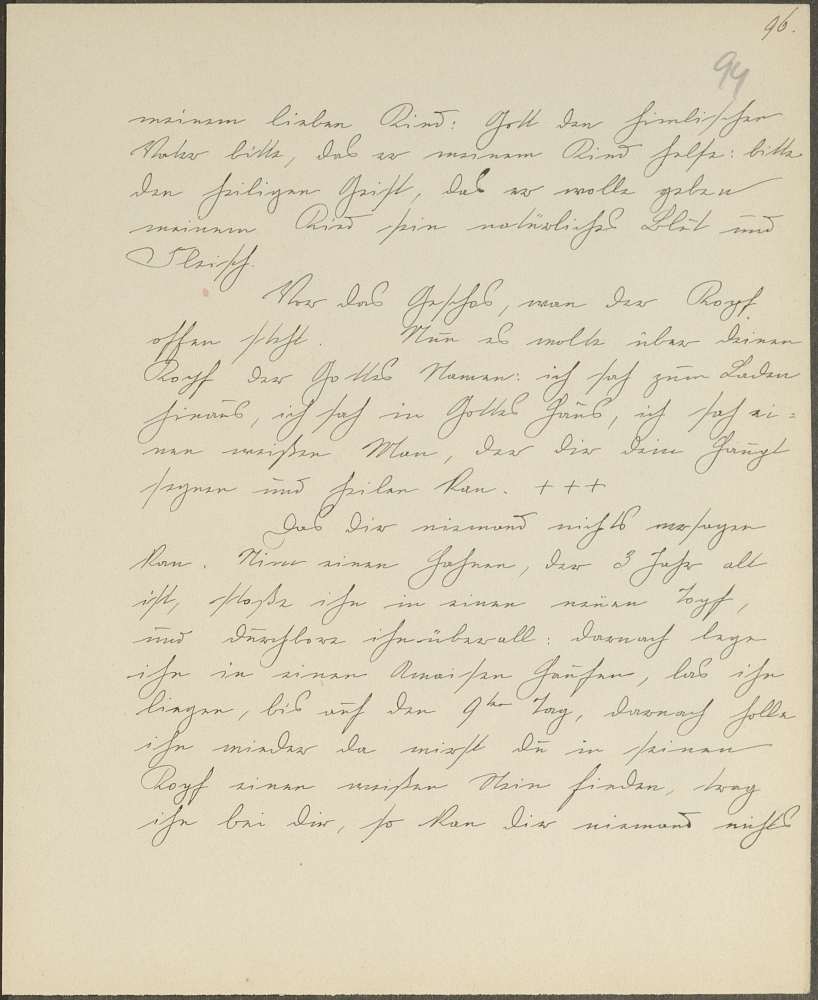 96.
94
meinem lieben Kind: Gott den himlischen
Vater bitte, das er meinem Kind helfe: bitte
den heiligen Geist, das er wolle geben
meinem Kind sein natürliches Blut und
Fleisch.
Vor das Geschos, wan der Kopf
offen steht. Nun es wolte über deinen
Kopf der Gottes Namen: ich sah zum Laden
hinaus, ich sah in Gottes Haus, ich sah ei=
nen weißen Man, der dir dein Haupt
segnen und heilen kan. +++
Das dir niemand nichts versagen
kan. Nim einen Hahnen, der 3 Jahr alt
ist, stoße ihn in einen neuen Topf,
und durchbore ihn überall: darnach lege
ihn in einen Amaisen Haufen, las ihn
liegen, bis auf den 9ten Tag, darnach holle
ihn wieder da wirst du in seinen
Kopf einen weißen Stein finden, trag
ihn bei dir, so kan dir niemand nichts